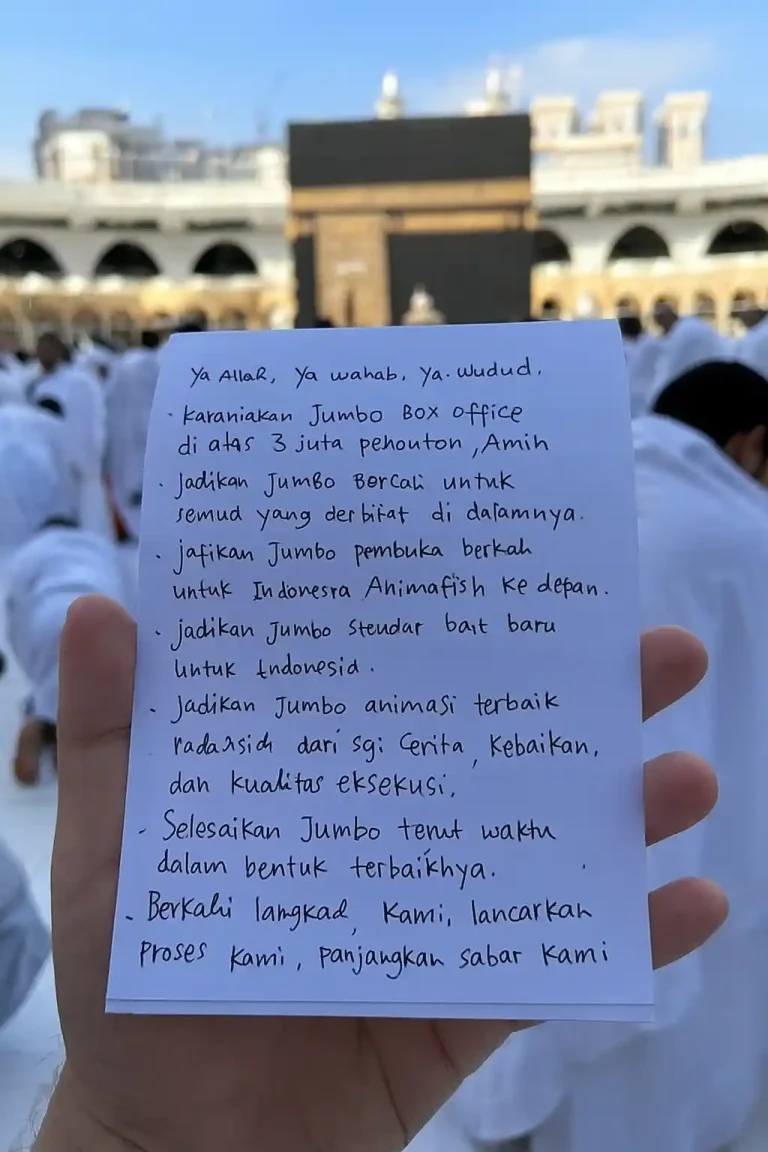 Ya Allah, Ya wahab, Ya. Wudud.
· Karaniakan Jumbo Box office
di atas 3 juta penouton, Amih
· Jadikan Jumbo Bercah untuk
semud yang derbifat di dafamnya.
· jafikan Jumbo pembuka berkah
untuk Indonesra Animafish Ke depan.
· jadikan Jumbo Steudar bait baru
Untuk Endonesid.
· Jadikan Jumbo animasi terbaik
dari sgi Cerita, Kebaikan,
dan kualitas eksekusi.
- Selesaikan Jumbo terut waktu
dalam bentuk terbaikhya.
- Berkahi langkad, Kami, lancarkan
Proses Kami, panjangkan sabar Kami